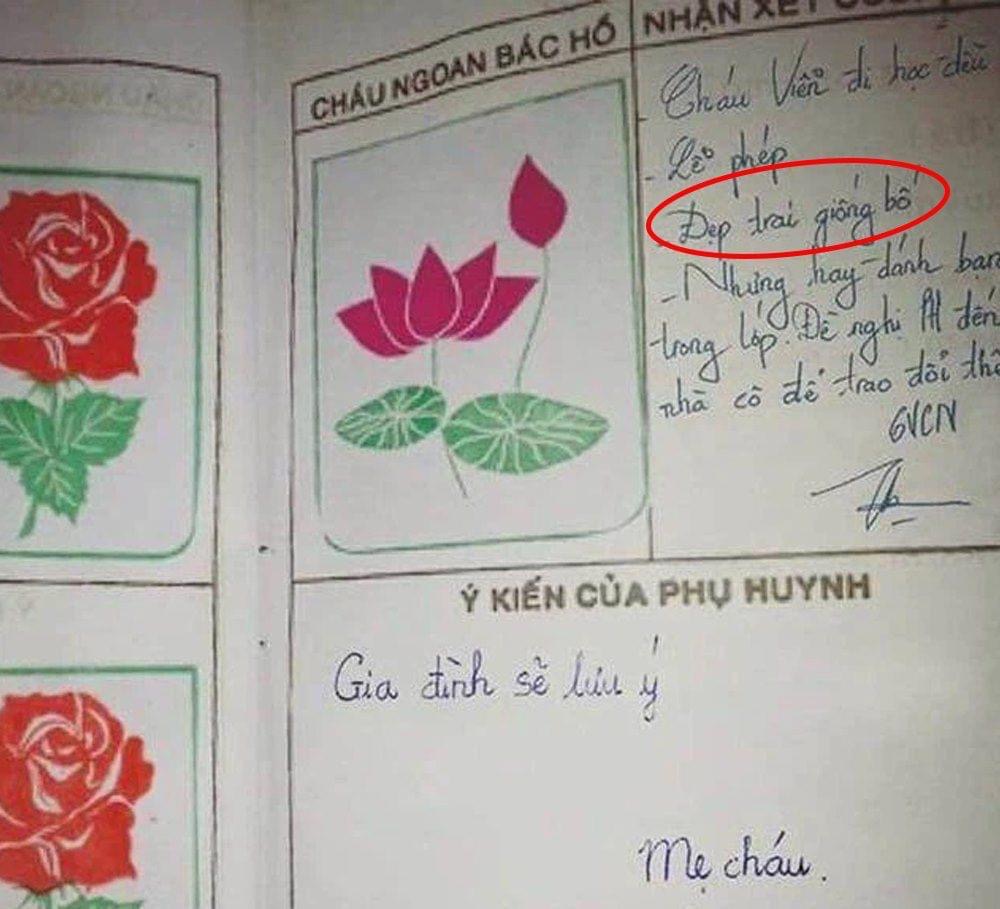 CHÁU NGOAN BÁC HỒ
NHẬN XÉT CỦA
- Cháu Viễn đi học đều
- Lễ phép
Đẹp trai giống bố
- Nhưng hay đánh bạn
trong lớp. Đề nghị PH đến
nhà cô để trao đổi
GVCN
Ý KIẾN CỦA PHỤ HUYNH
Gia đình sẽ lưu ý
Mẹ cháu.